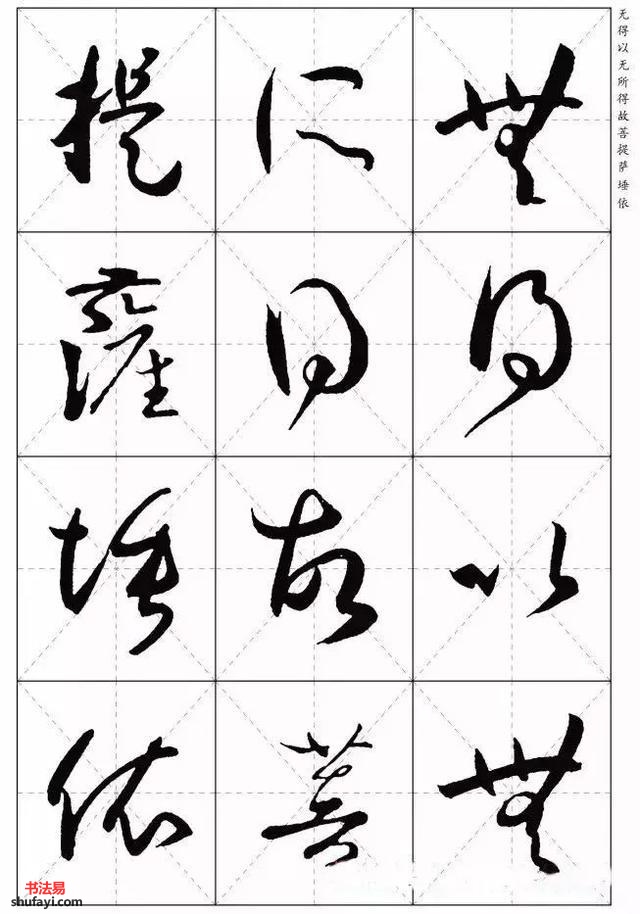 無得以無
所得故菩
提薩埵依
无得以无所得故菩提萨埵依
书法易
shufayi.com